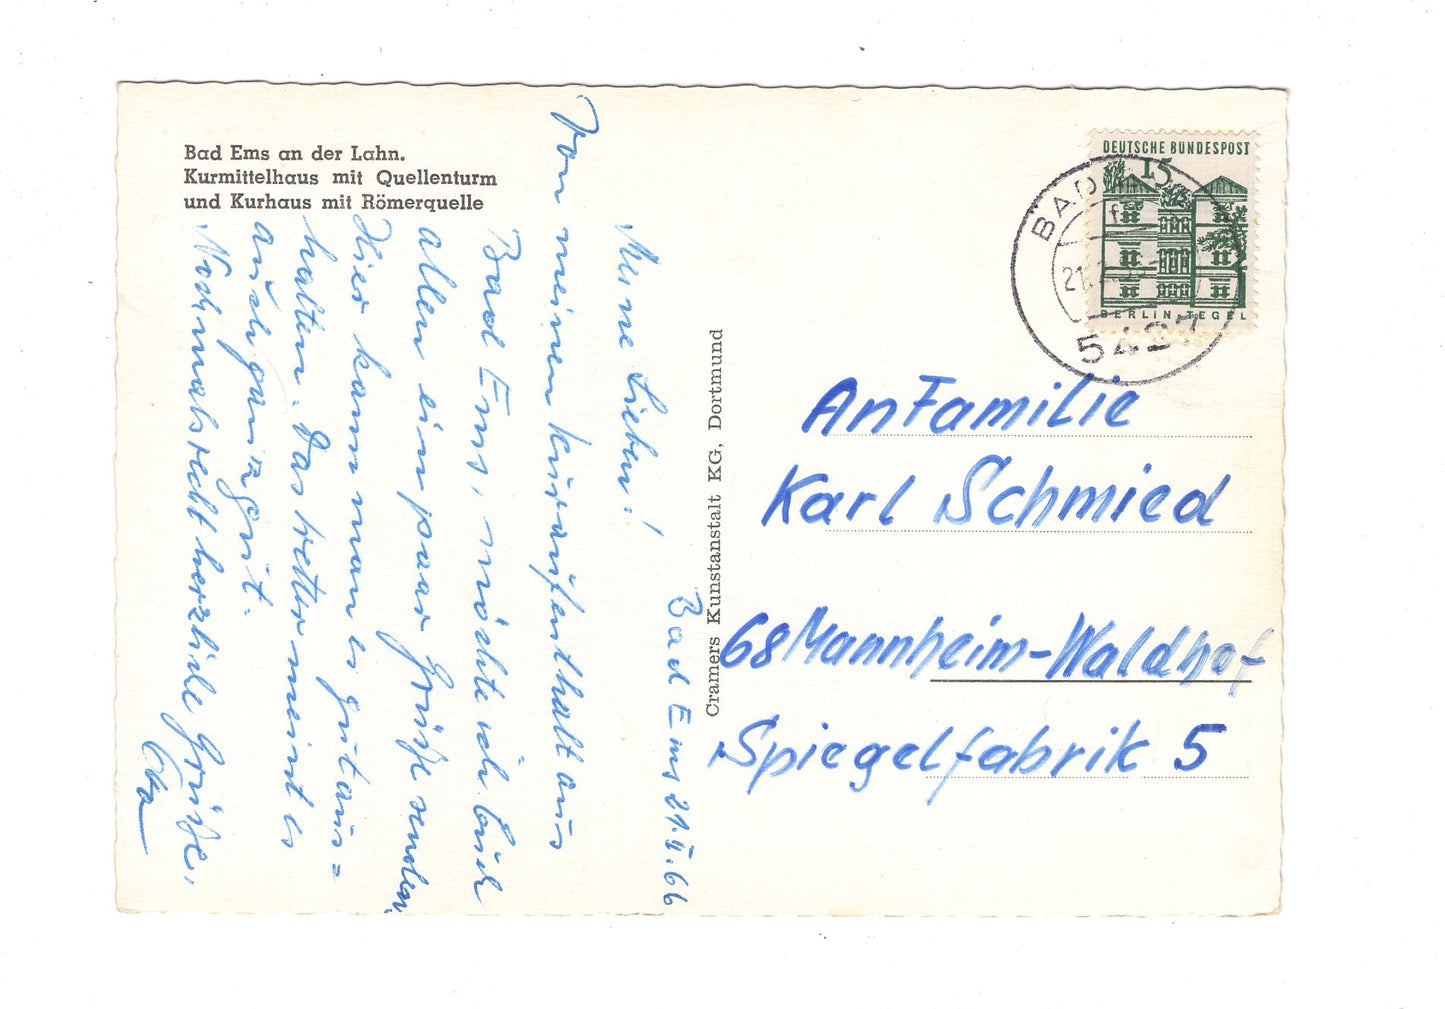 Bad Ems an der Lahn.
Kurmittelhaus mit Quellenturm
und Kurhaus mit Römerquelle
Bad Ems 21.II.66
Meine Lieben!
Von meinen Kuraufenthalt aus
Bad Ems, möchte ich Euch
allen ein paar Grüße senden.
Hier kann man es gut aus=
halten. Das Wetter meint es
auch ganz gut.
Nochmals recht herzliche Grüße,
Cramers Kunstanstalt KG, Dortmund
DEUTSCHE BUNDESPOST
15
BERLIN TEGEL
BAD
21.
5427
An Familie
Karl Schmied
68 Mannheim-Waldhof
Spiegelfabrik 5